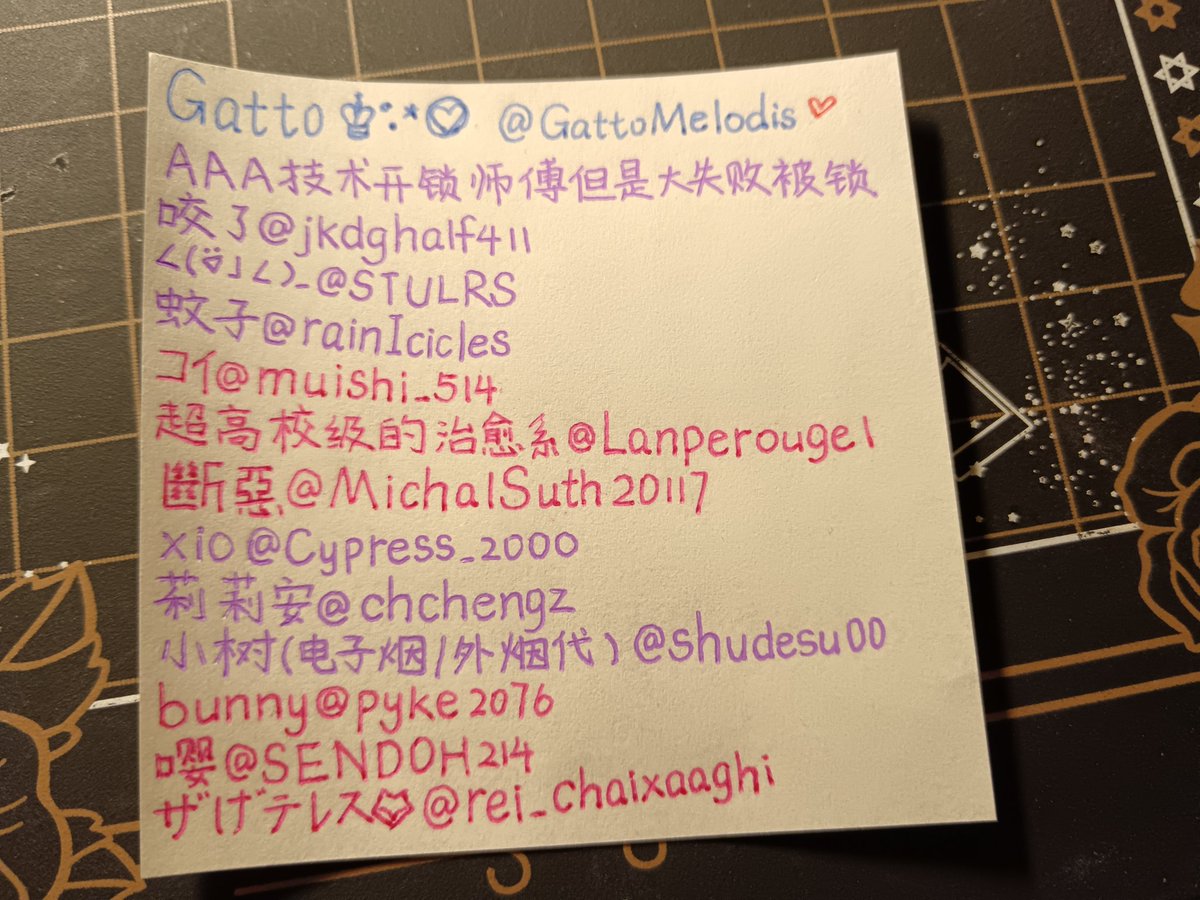 Gatto ♔:·*♡ @GattoMelodis♡
AAA技术开锁师傅但是大失败被锁
咬了@jkdghalf411
∠(ᐛ」∠)_@STULRS
蚊子@rainIcicles
コイ@muishi_514
超高校级的治愈系@Lanperouge1
斷惡@MichalSuth20117
xio@Cypress_2000
莉莉安@chchengz
小树(电子烟/外烟代)@shudesu00
bunny@pyke2076
嘤@SENDOH214
ザげテレス@rei_chaixaaghi